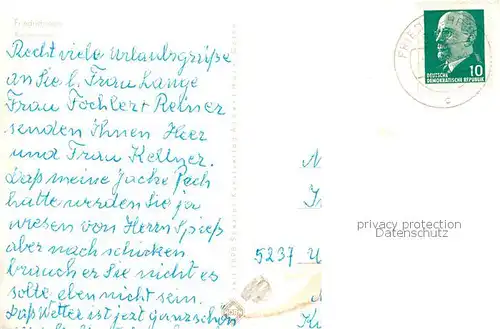 Friedrichroda
Recht viele Urlaubsgrüße
an Sie l. Frau Lange
Frau Fochler + Reiner
senden Ihnen Herr
und Frau Kellner.
Daß meine Jacke Pech
hatte werden Sie ja
wissen von Herrn Spieß
aber nach schicken
braucher Sie nicht es
solte eben nicht sein.
Das Wetter ist jezt ganz schön
10
DEUTSCHE
DEMOKRATISCHE REPUBLIK
FRIED
c
privacy protection
Datenschutz
5237